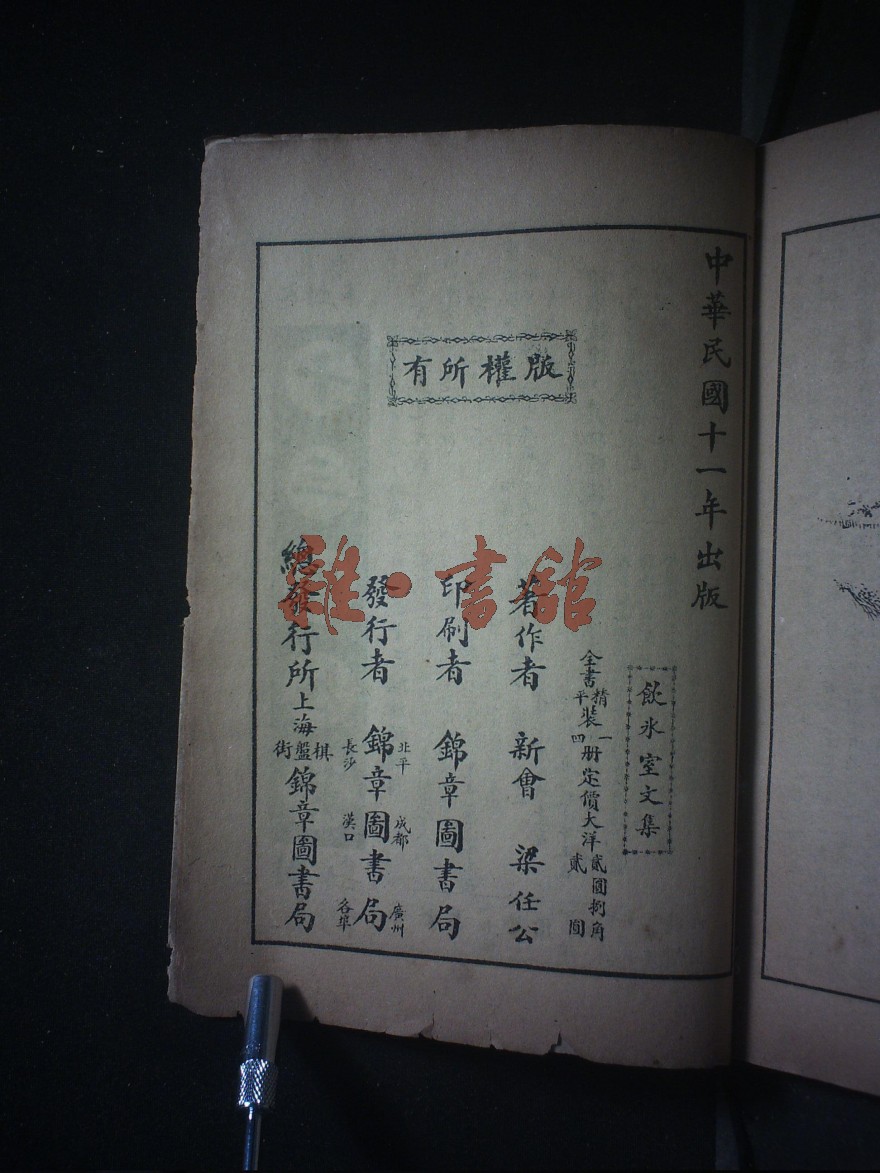 中華民國十一年出版
飲氷室文集
全書精平裝一四册定價大洋貳圓捌角貳圓
版權所有
著作者 新會 梁任公
印刷者 錦章圖書局
發行者 北平 成都 廣州 錦章圖書局 長沙 漢口 各埠
總發行所 上海棋盤街 錦章圖書局
雜·書館